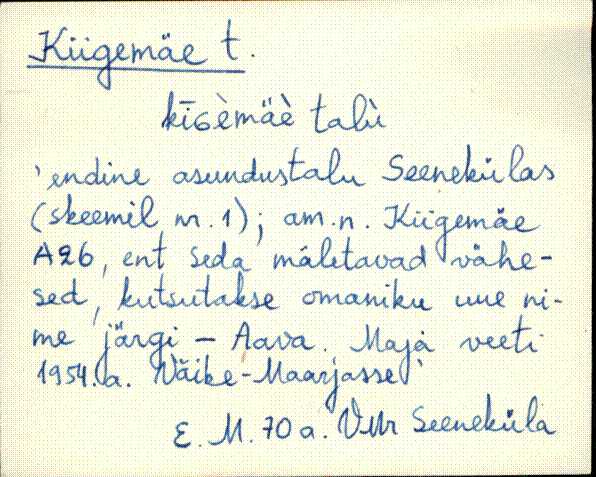 Kiigemäe t.
kīɢèmäè talù
'endine asundustalu Seenekülas
(skeemil nr. 1); am.n. Kiigemäe
A26, ent seda mäletavad vähe-
sed, kutsutakse omaniku uue ni-
me järgi – Aava. Maja veeti
1954. a. Väike-Maarjasse'
E. M. 70 a. VMr Seeneküla